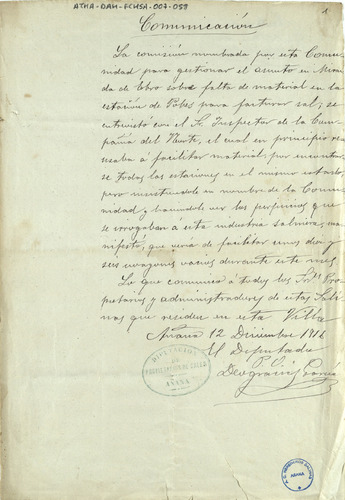 ATHA-DAH-FCMSA-007-058
1
Comunicación
La comisión nombrada por esta Comu-
nidad para gestionar el asunto en Miran-
da de Ebro sobre falta de material en la
estación de Pobes para facturar sal; se
entrevistó con el Sr. Inspector de la Com-
pañía del Norte, el cual en principio reu
saba a facilitar material, por encontrar-
se todas las estaciones en el mismo estado,
pero insistiendo en nombre de la Comu-
nidad y haciendole ver los perjuicios que
se irrogaban a ésta industria salinera, ma-
nifestó, que vería de facilitar unos diez y
seis vagones vacios durante este mes.
Lo que comunico a todos los Srs. Pro-
pietarios y administradores de estas Sali-
nas que residen en esta Villa
Añana 12 Diciembre 1916
El Diputado
P. O.
Deogracias García
DIPUTACION
DE
AÑANA
AÑANA